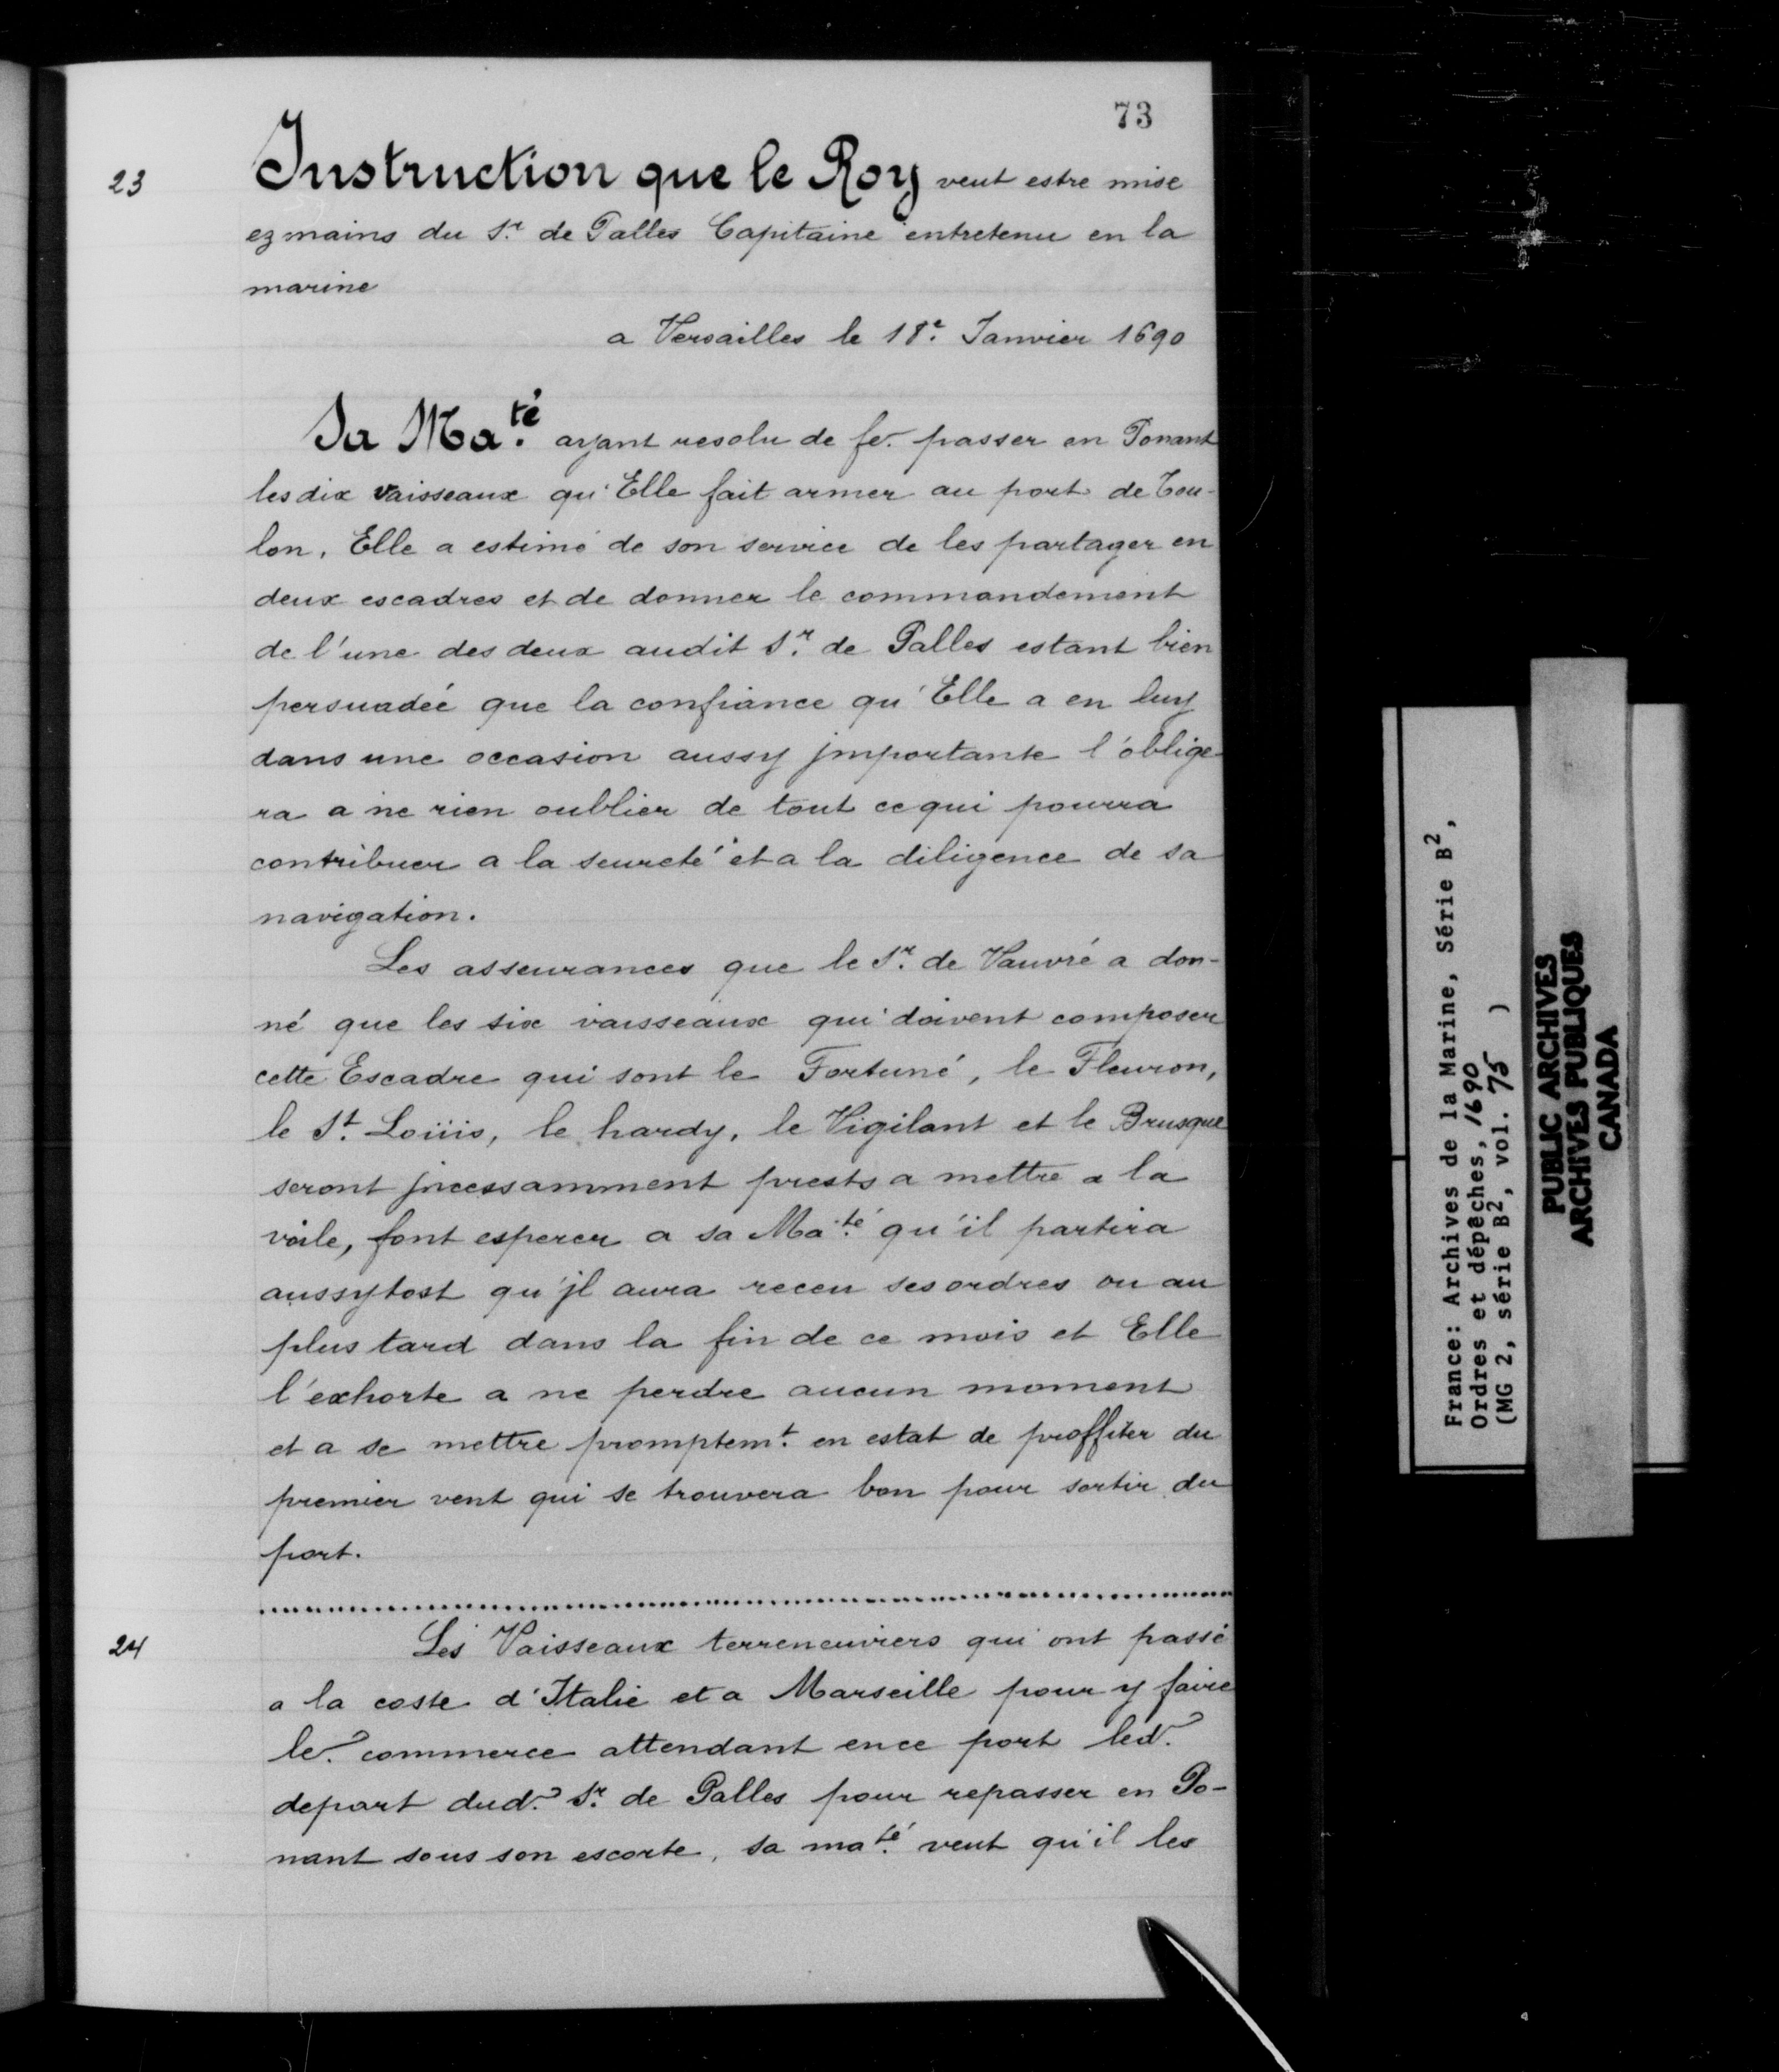 73
23
Instruction que le Roy veut estre mise
ez mains du Sr. de Palles Capitaine entretenu en la
marine
a Versailles le 18e. Janvier 1690
Sa Ma.té ayant resolu de fe. passer en Ponant
les dix vaisseaux qu'Elle fait armer au port de Tou-
lon, Elle a estimé de son service de les partager en
deux escadres et de donner le commandement
de l'une des deux audit Sr. de Palles estant bien
persuadée que la confiance qu'Elle a en luy
dans une occasion aussy jmportante l'oblige-
ra a ne rien oublier de tout ce qui pourra
contribuer a la seureté et a la diligence de sa
navigation.
Les asseurances que le Sr. de Vauvré a don-
né que les six vaisseaux qui doivent composer
cette Escadre qui sont le Fortuné, le Fleuron,
le St. Loüis, le hardy, le Vigilant et le Brusque
seront jncessamment prests a mettre a la
voile, font esperer a sa Ma.té qu'il partira
aussytost qu'jl aura receu ses ordres ou au
plus tard dans la fin de ce mois et Elle
l'exhorte a ne perdre aucun moment
et a se mettre promptemt. en estat de proffiter du
premier vent qui se trouvera bon pour sortir du
port.
24
Les Vaisseaux terreneuviers qui ont passé
a la coste d'Italie et a Marseille pour y faire
le. commerce attendant en ce port led.
depart dud. Sr. de Palles pour repasser en Po-
nant sous son escorte, sa ma.té veut qu'il les
France: Archives de la Marine, Série B2,
Ordres et dépêches, 1690
(MG 2, série B2, vol. 75 )
PUBLIC ARCHIVES
ARCHIVES PUBLIQUES
CANADA